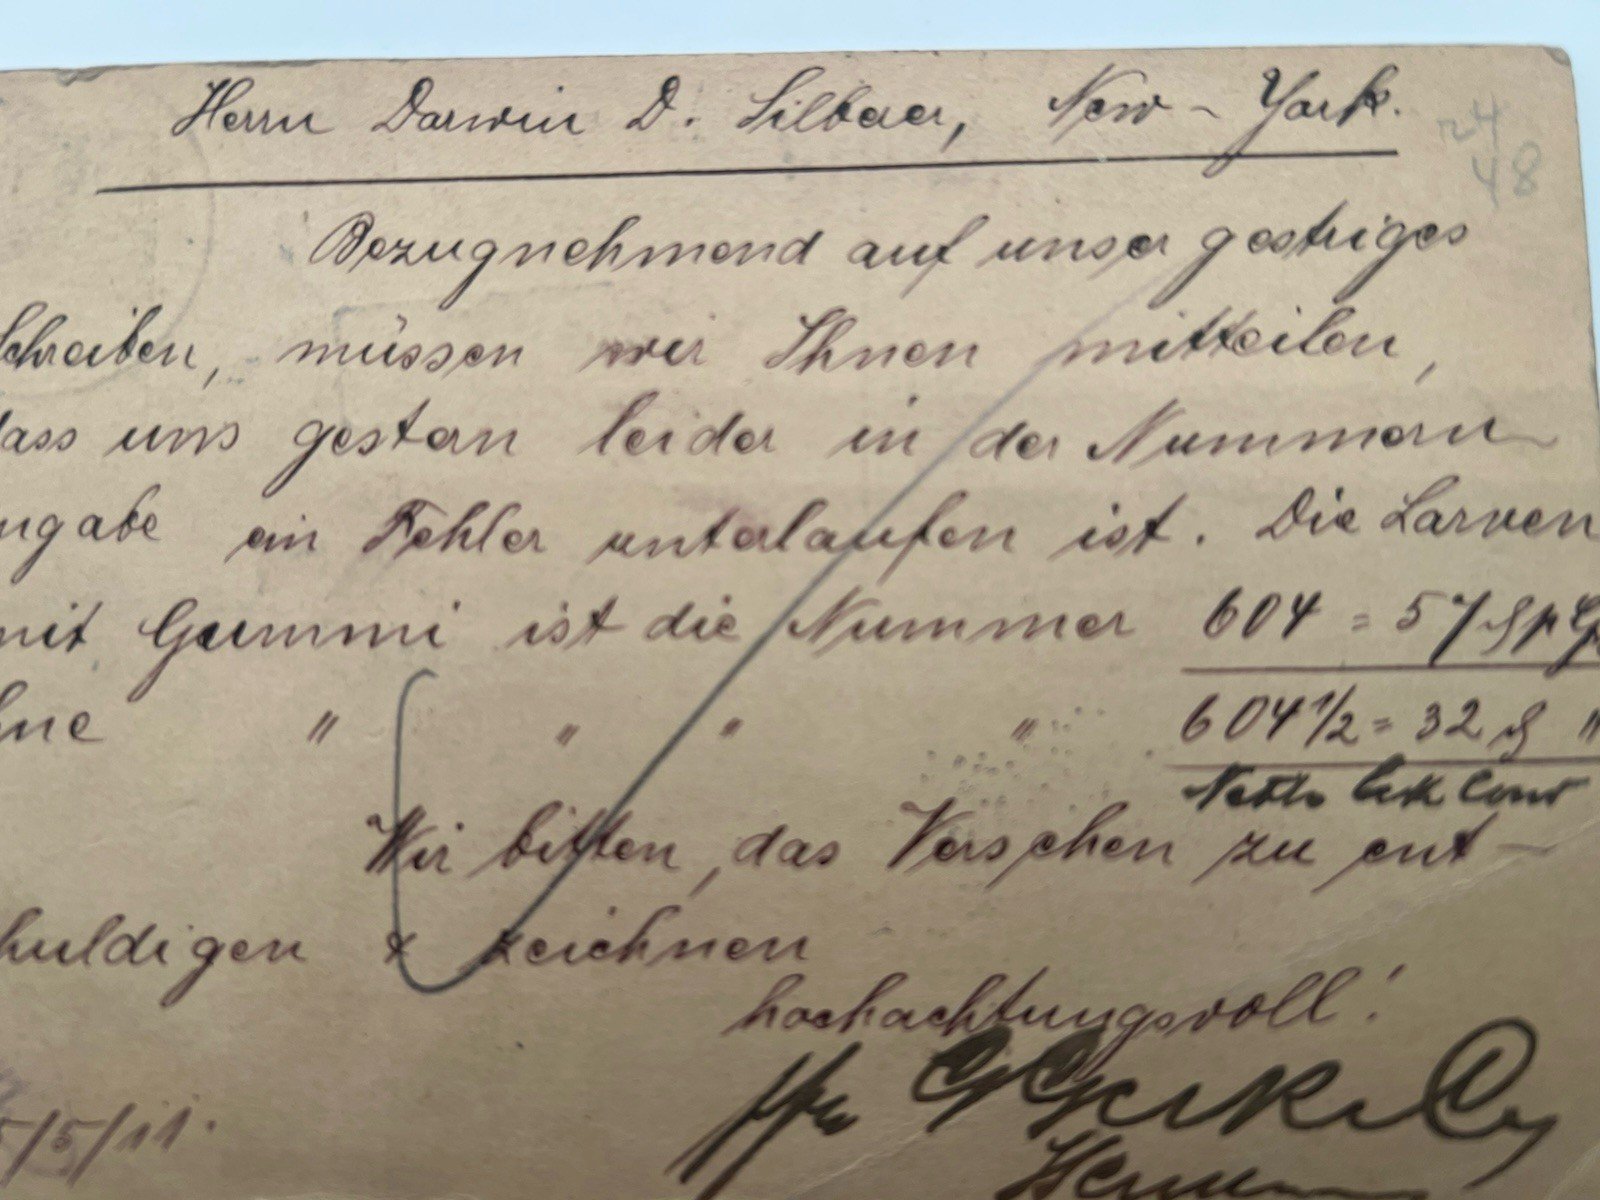 Herrn Darwin D. Silberer, New-York.
24
48
Bezugnehmend auf unser gestriges
Schreiben, müssen wir Ihnen mitteilen,
dass uns gestern leider in der Nummern
ngabe ein Fehler unterlaufen ist. Die Larven
mit Gummi ist die Nummer 604 = 57
hne " " " " 604 1/2 = 32 "
Netto
Wir bitten, das Versehen zu ent-
huldigen & zeichnen
hochachtungsvoll!
5/5/11.